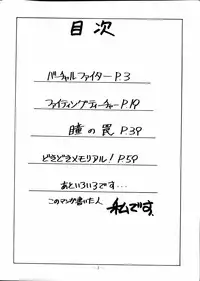 目次
バーチャルファイター P.3
ファイティングティーチャー P.19
瞳の罠 P.39
どきどきメモリアル! P.59
あといろいろです・・・
このマンガ書いた人 私です。